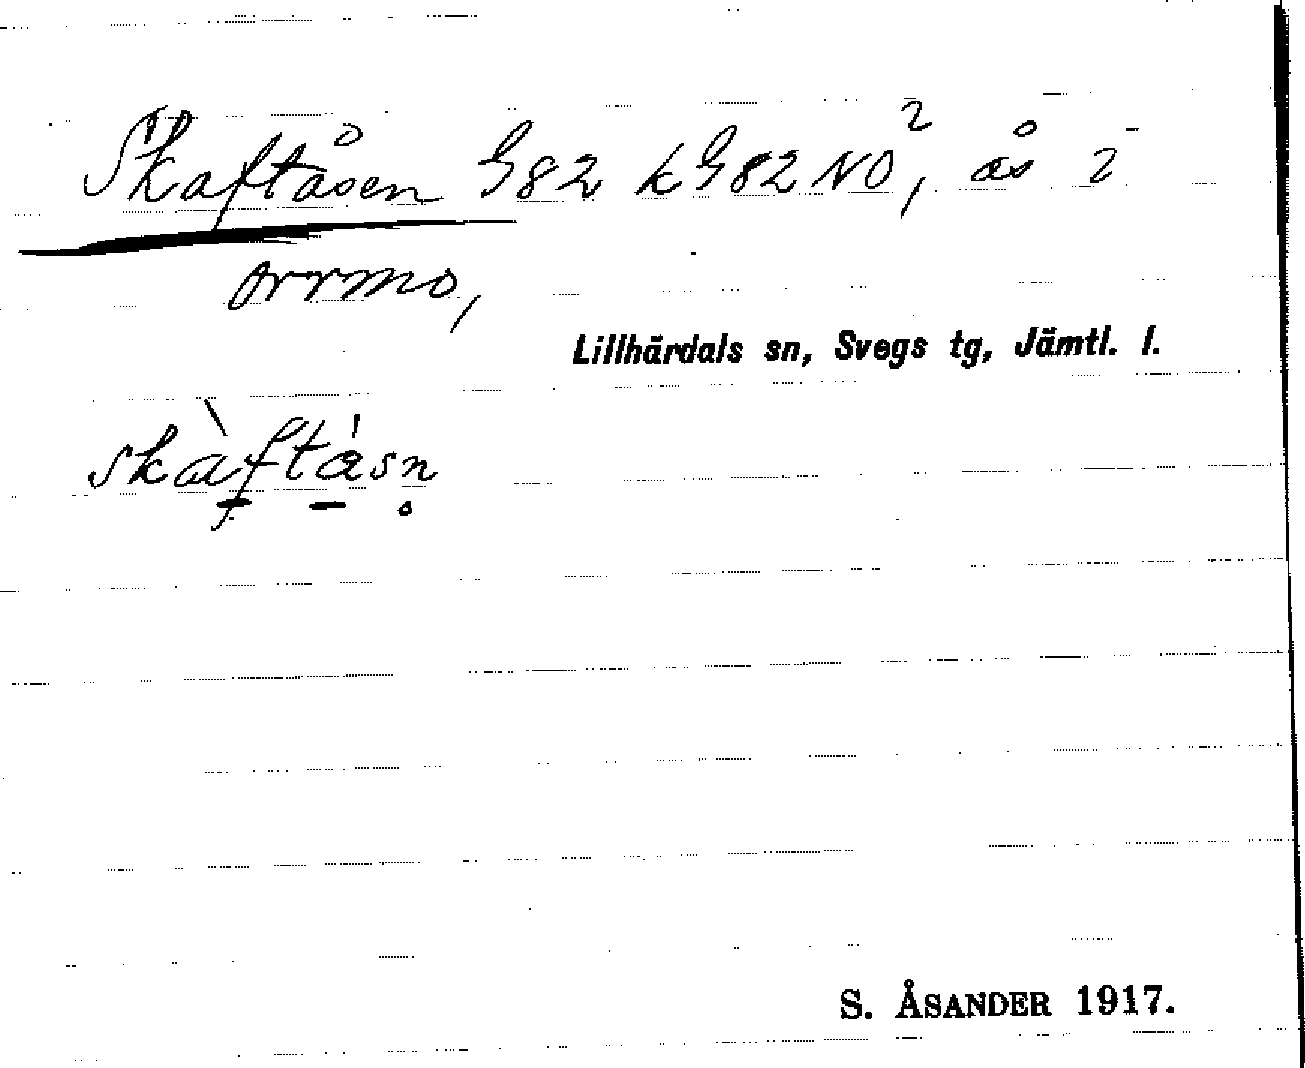 Skaftåsen G82 k G82 NO², ås i
orrmo,
Lillhärdals sn, Svegs tg, Jämtl. l.
skàftåsn̥
S. ÅSANDER 1917.